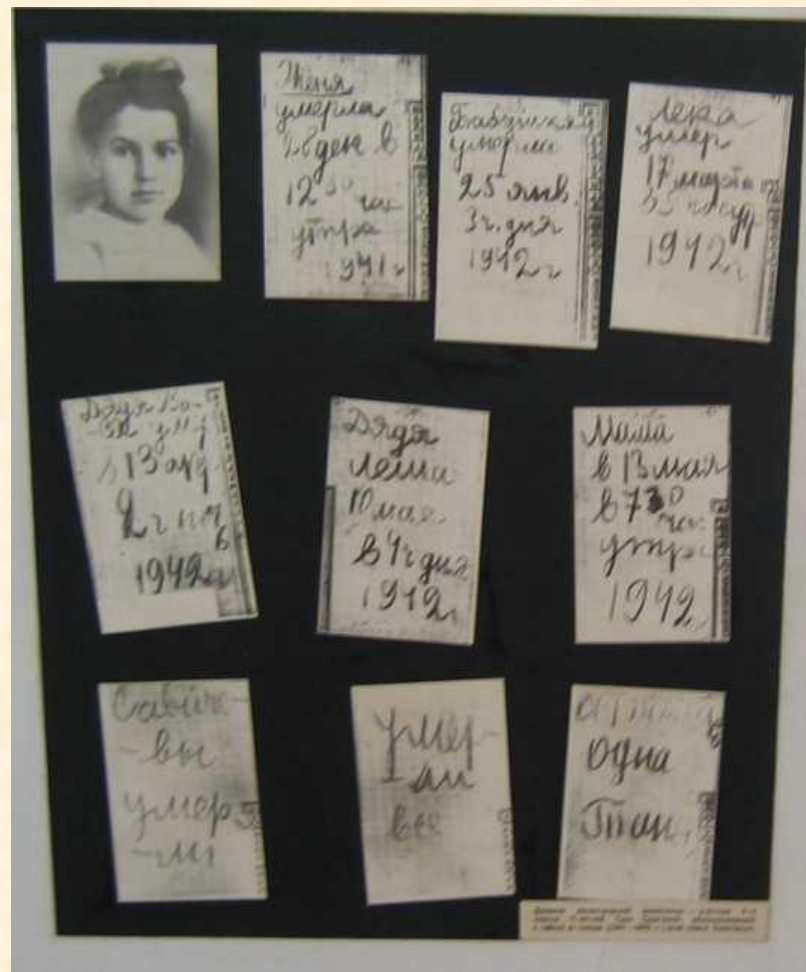 Женя
умерла
28 ден в
12 30 час
утра
1941 г
Бабушка
умерла
25 янв.
3 ч. дня
1942 г
Лека
умер
17 марта
в 5 час утр
1942 г
Дядя Ва-
-ся ум
в 13 апр
2 ч ноч
1942 г
Дядя
Леша
10 мая
в 4 ч дня
1942 г
Мама
в 13 мая
в 7 30 час
утра
1942
Савиче-
-вы
умер
-ли
умер-
-ли
все
одна
Таня